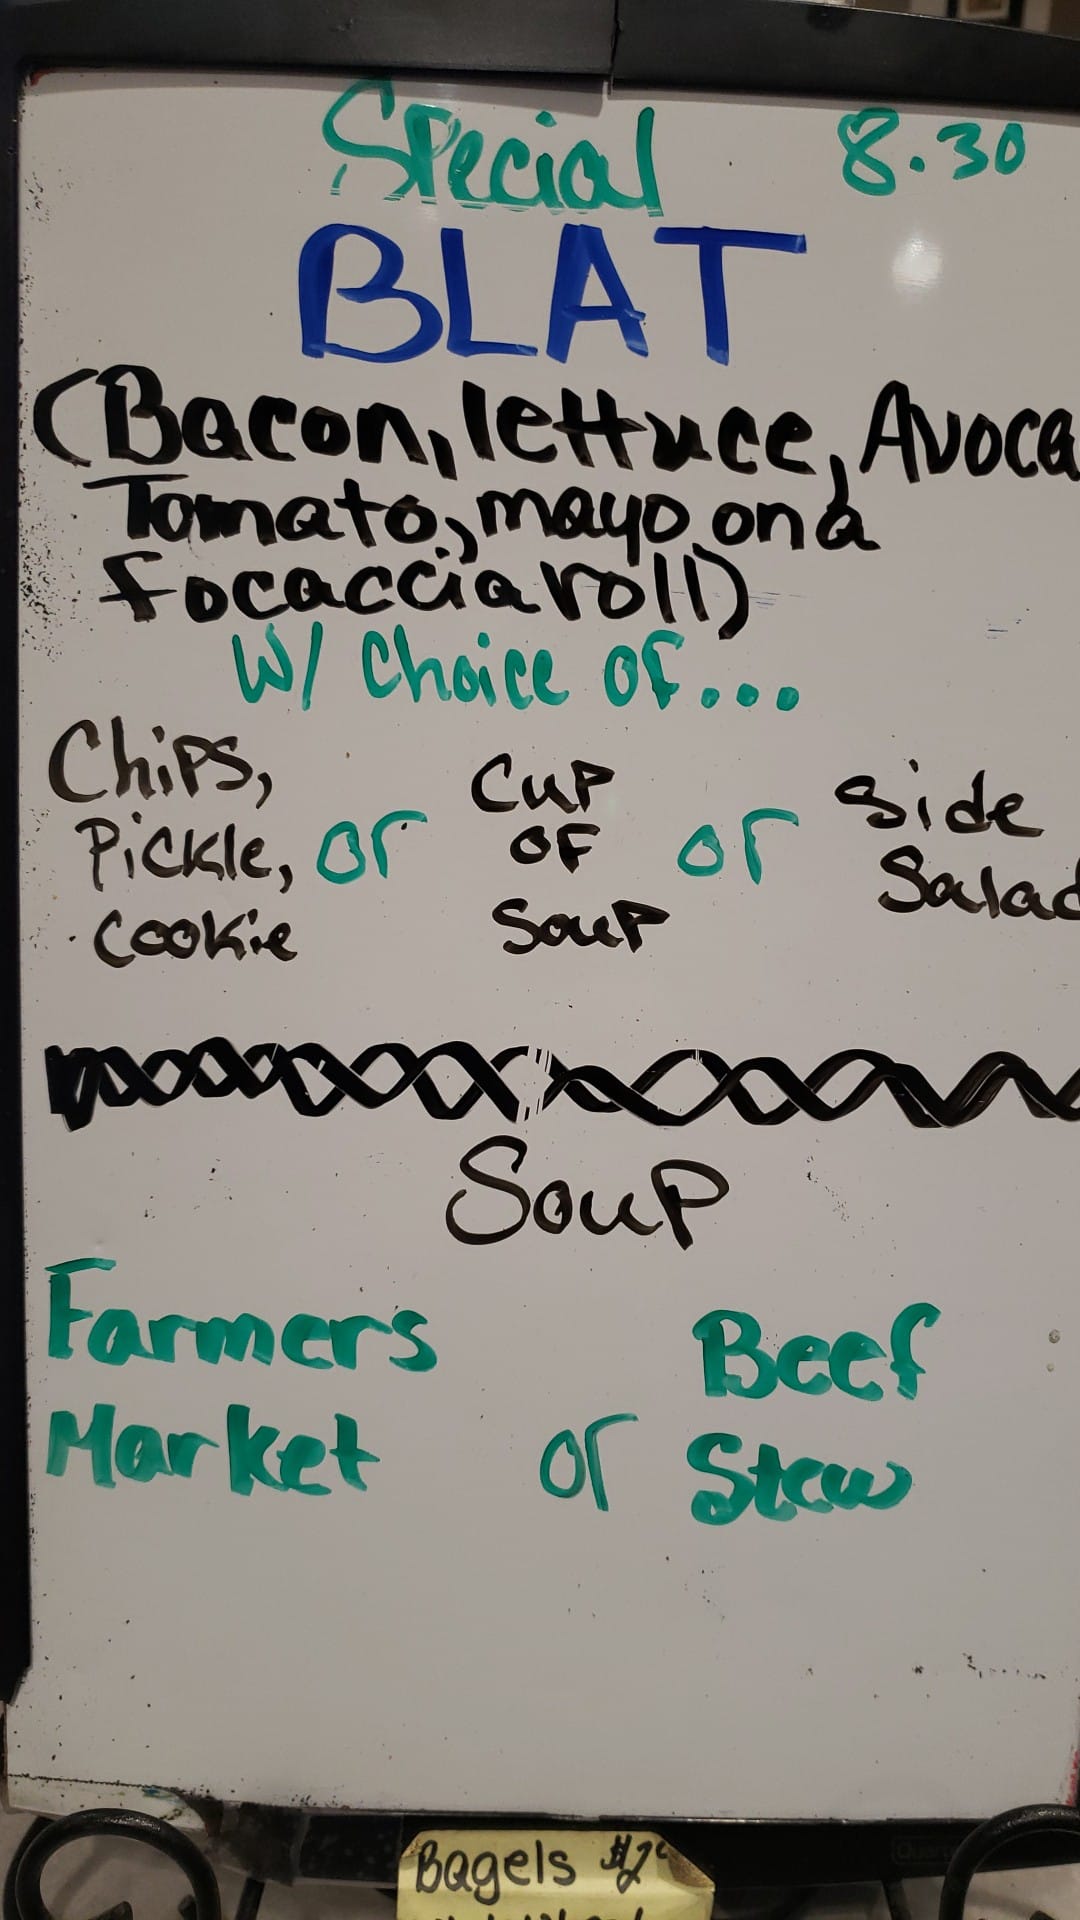 Special 8.30
BLAT
(Bacon, lettuce, Avoca
Tomato, mayo on a
focaccia roll)
W/ Choice of...
Chips, Pickle, Cookie or Cup of Soup or Side Salad
Soup
Farmers Market or Beef Stew
Bagels